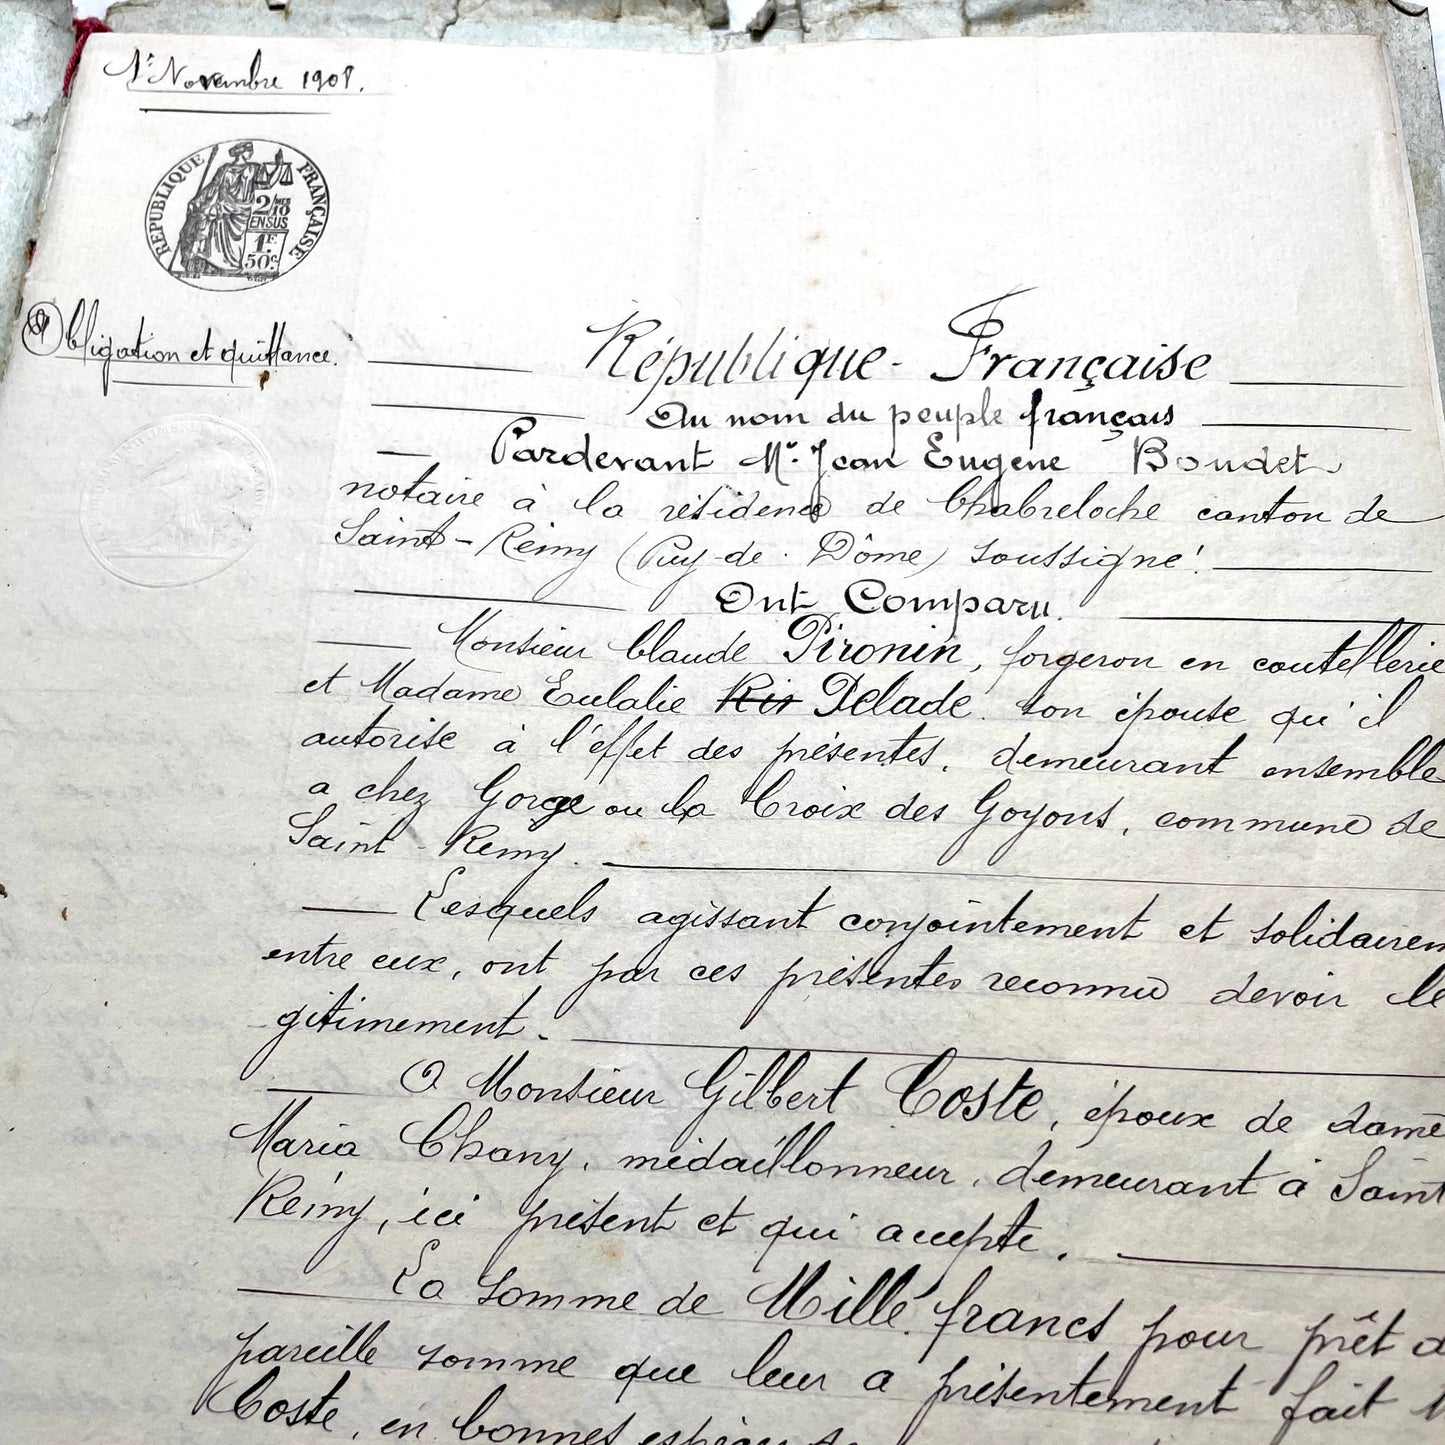 1er Novembre 1908.
RÉPUBLIQUE FRANÇAISE
2/10 MES
EN SUS
1F
50c
Obligation et quittance.
République-Française
Au nom du peuple français
Pardevant Me. Jean Eugène Boudet
notaire à la résidence de Chabreloche canton de
Saint-Rémy (Puy-de-Dôme) soussigné!
Ont Comparu.
Monsieur Claude Pironin, forgeron en coutellerie
et Madame Eulalie Ris Delade son épouse qu'il
autorise à l'effet des présentes, demeurant ensemble
a chez Gorge ou la Croix des Goyons, commune de
Saint-Rémy.
Lesquels agissant conjointement et solidairem
entre eux, ont par ces présentes reconnu devoir lé
gitimement.
A Monsieur Gilbert Coste, époux de dame
Maria Chany, médaillonneur, demeurant à Saint
Rémy, ici présent et qui accepte.
La somme de Mille francs pour prêt d
pareille somme que leur a présentement fait M
Coste, en bonnes espèces de